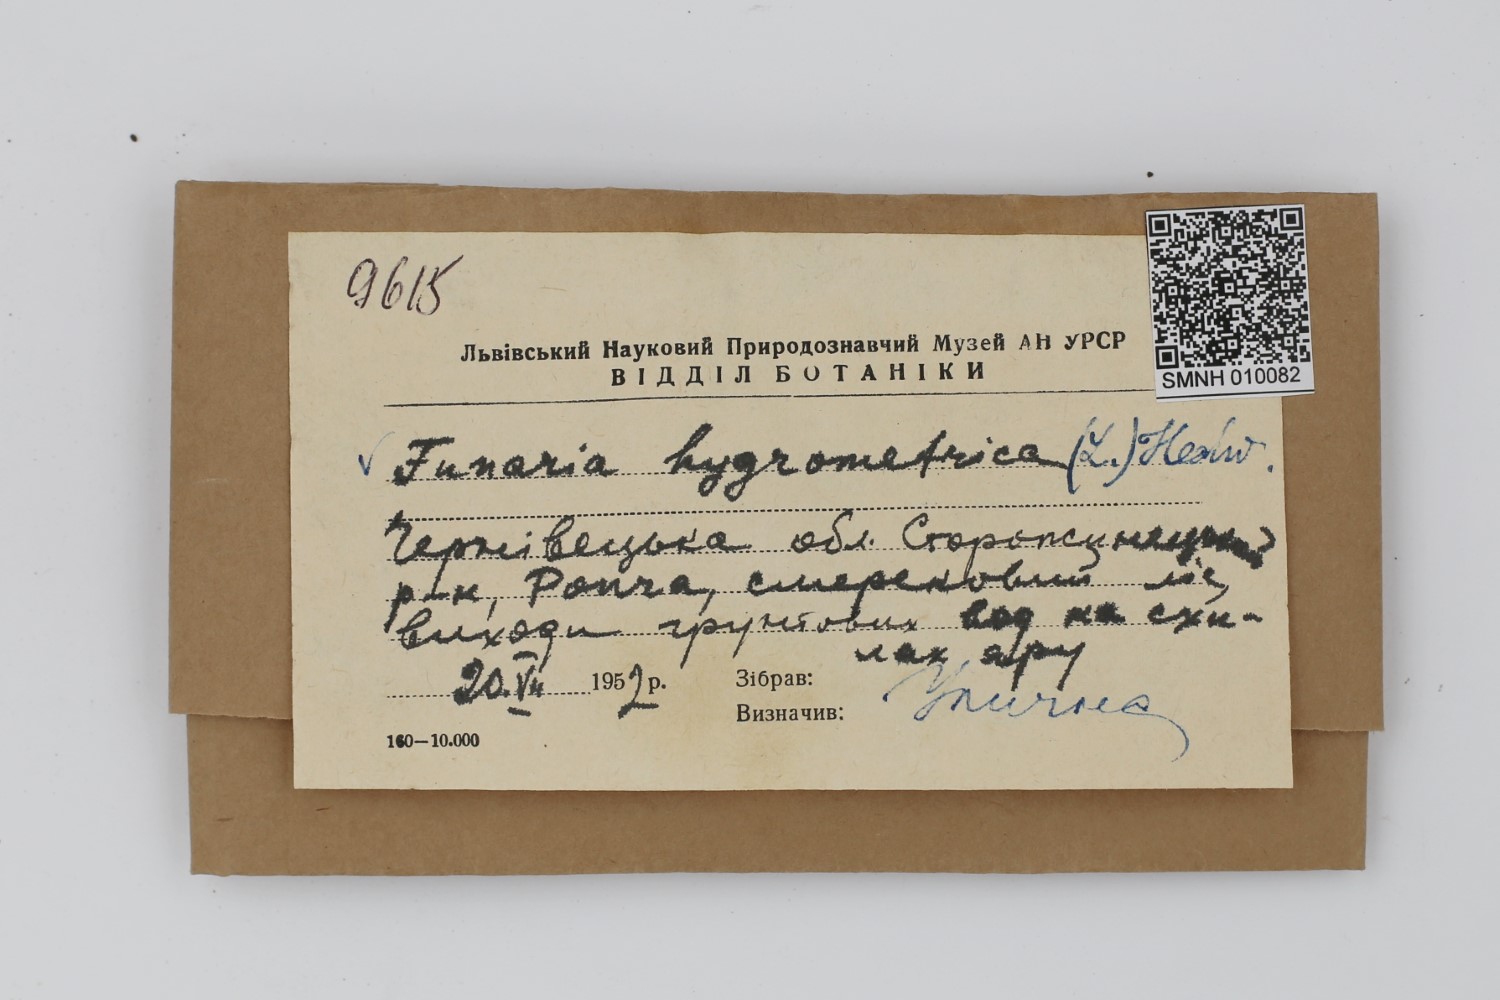 9615
Львівський Науковий Природознавчий Музей АН УРСР
ВІДДІЛ БОТАНІКИ
SMNH 010082
√ Funaria hygrometrica (L.) Hedw.
Чернівецька обл. Сторожинецький
р-н, Ропча, смерековий ліс,
виходи грунтових вод на схи-
лах яру
20.VII 1952 р.
Зібрав:
Визначив: Улична
160—10.000